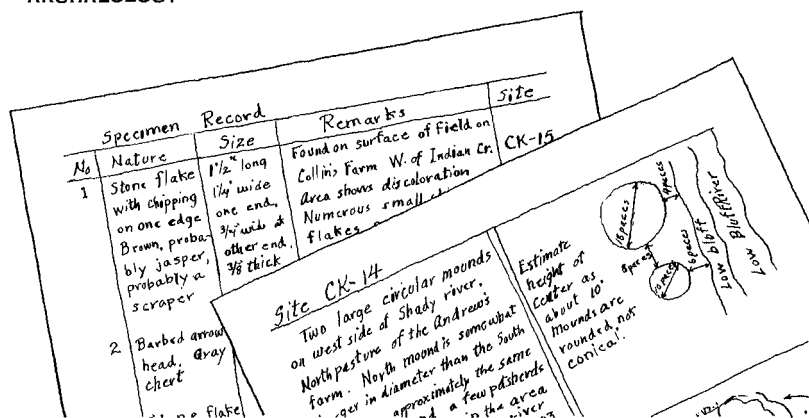 Specimen Record
No Nature Size Remarks Site
1
Stone flake
with chipping
on one edge
Brown, proba-
bly jasper,
probably a
scraper
1½" long
1¼" wide
one end,
¾" wide at
other end,
⅜ thick
Found on surface of field on
Collins Farm W. of Indian Cr.
Area shows discoloration
Numerous small
flakes
CK-15
2
Barbed arrow
head, Gray
chert
flake
Site CK-14
Two large circular mounds
on west side of Shady river.
North pasture of the Andrew's
farm. North mound is somewhat
larger in diameter than the South
approximately the same
a few potsherds
in the area
river
Estimate
height of
center as
about 10'
mounds are
rounded, not
conical.
18 paces
4 paces
8 paces
6 paces
10 paces
Low bluff
Low Bluff River